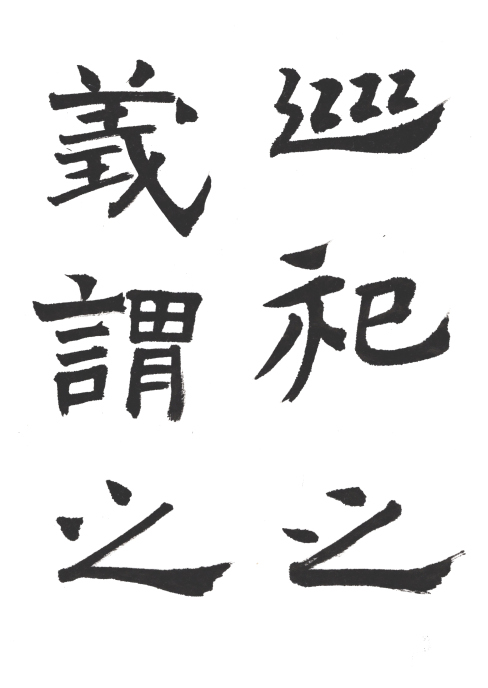 巡祀之
義謂之